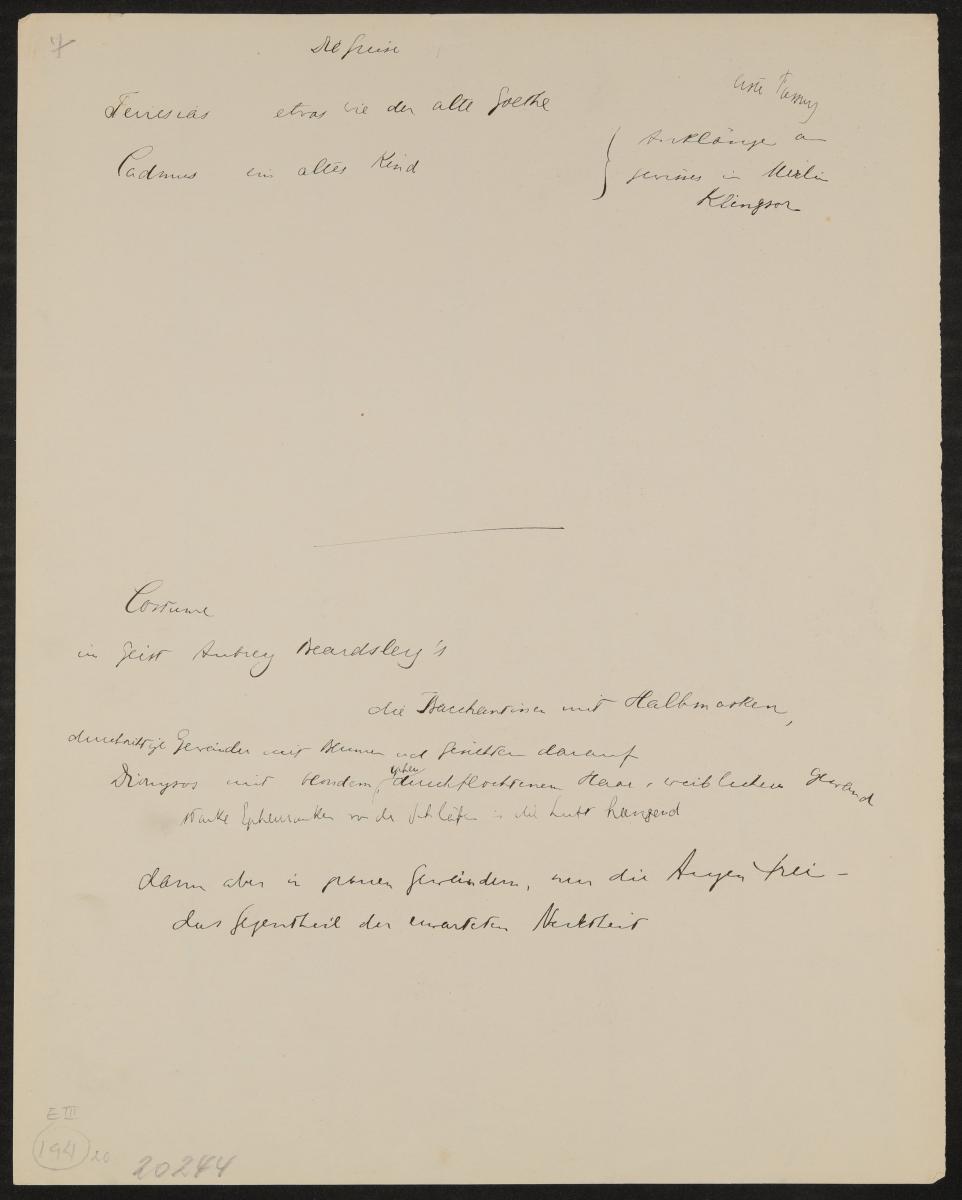 7
Die Greise
erste Fassung
Teiresias etwas wie der alte Goethe
Anklänge an
Cadmus ein altes Kind
gewisses in Merlin
Klingsor
Costume
im Geist Aubrey Beardsley's
die Bacchantinnen mit Halbmasken,
durchsichtige Gewänder mit Blumen und Gesichtern darauf
Dionysos mit blondem epheu durchflochtenem Haar, weiblichem Gewand
starke Epheuranken von den Schläfen in die Luft hängend
dann aber in grauen Gewändern, nur die Augen frei –
das Gegentheil der erwarteten Nacktheit
E III
194 20
20244